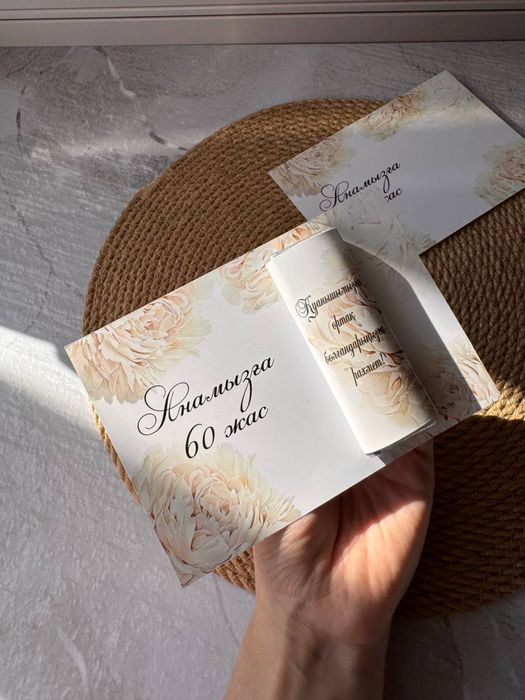 Анамызға
60 жас
Қуанышымызға
ортақ
болғандарыңызға
рахмет!
Анамызға
жас